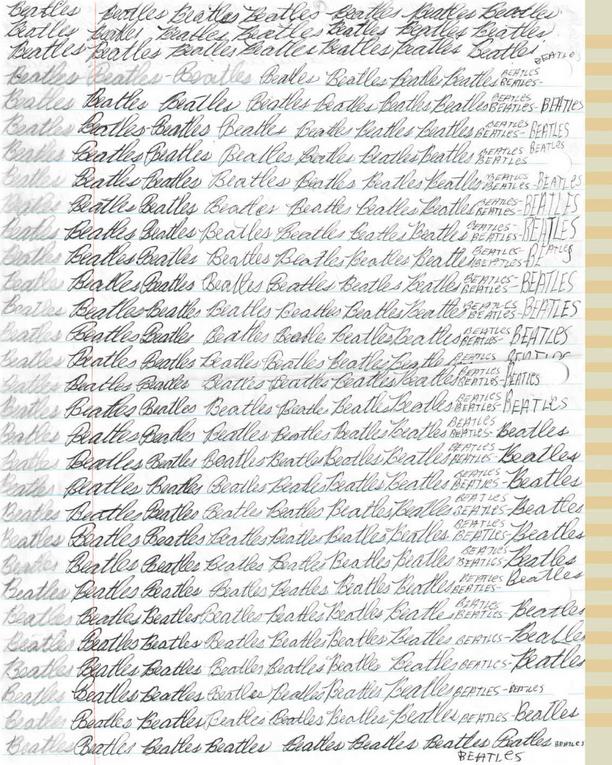 Beatles Beatles Beatles Beatles Beatles Beatles Beatles
Beatles Beatles Beatles Beatles Beatles Beatles Beatles
Beatles Beatles Beatles Beatles Beatles Beatles Beatles BEATLES
Beatles Beatles Beatles Beatles Beatles Beatles Beatles BEATLES BEATLES-
Beatles Beatles Beatles Beatles Beatles Beatles Beatles BEATLES BEATLES- BEATLES
Beatles Beatles Beatles Beatles Beatles Beatles Beatles BEATLES BEATLES- BEATLES
Beatles Beatles Beatles Beatles Beatles Beatles Beatles BEATLES BEATLES BEATLES
Beatles Beatles Beatles Beatles Beatles Beatles Beatles BEATLES BEATLES- BEATLES
Beatles Beatles Beatles Beatles Beatles Beatles Beatles BEATLES BEATLES- BEATLES
Beatles Beatles Beatles Beatles Beatles Beatles Beatles BEATLES BEATLES- BEATLES
Beatles Beatles Beatles Beatles Beatles Beatles Beatles BEATLES BEATLES- BEATLES
Beatles Beatles Beatles Beatles Beatles Beatles Beatles BEATLES BEATLES- BEATLES
Beatles Beatles Beatles Beatles Beatles Beatles Beatles BEATLES BEATLES- BEATLES
Beatles Beatles Beatles Beatles Beatles Beatles Beatles BEATLES BEATLES- BEATLES
Beatles Beatles Beatles Beatles Beatles Beatles Beatles BEATLES BEATLES
Beatles Beatles Beatles Beatles Beatles Beatles Beatles BEATLES BEATLES- BEATLES
Beatles Beatles Beatles Beatles Beatles Beatles Beatles BEATLES BEATLES- BEATLES
Beatles Beatles Beatles Beatles Beatles Beatles Beatles BEATLES BEATLES- Beatles
Beatles Beatles Beatles Beatles Beatles Beatles Beatles BEATLES BEATLES- Beatles
Beatles Beatles Beatles Beatles Beatles Beatles Beatles BEATLES BEATLES- Beatles
Beatles Beatles Beatles Beatles Beatles Beatles Beatles BEATLES BEATLES- Beatles
Beatles Beatles Beatles Beatles Beatles Beatles Beatles BEATLES BEATLES- Beatles
Beatles Beatles Beatles Beatles Beatles Beatles Beatles BEATLES BEATLES- Beatles
Beatles Beatles Beatles Beatles Beatles Beatles Beatles BEATLES BEATLES- Beatles
Beatles Beatles Beatles Beatles Beatles Beatles Beatles BEATLES BEATLES- Beatles
Beatles Beatles Beatles Beatles Beatles Beatles Beatles BEATLES- Beatles
Beatles Beatles Beatles Beatles Beatles Beatles Beatles BEATLES- Beatles
Beatles Beatles Beatles Beatles Beatles Beatles Beatles BEATLES- BEATLES
Beatles Beatles Beatles Beatles Beatles Beatles Beatles BEATLES- Beatles
Beatles Beatles Beatles Beatles Beatles Beatles Beatles Beatles BEATLES
BEATLES